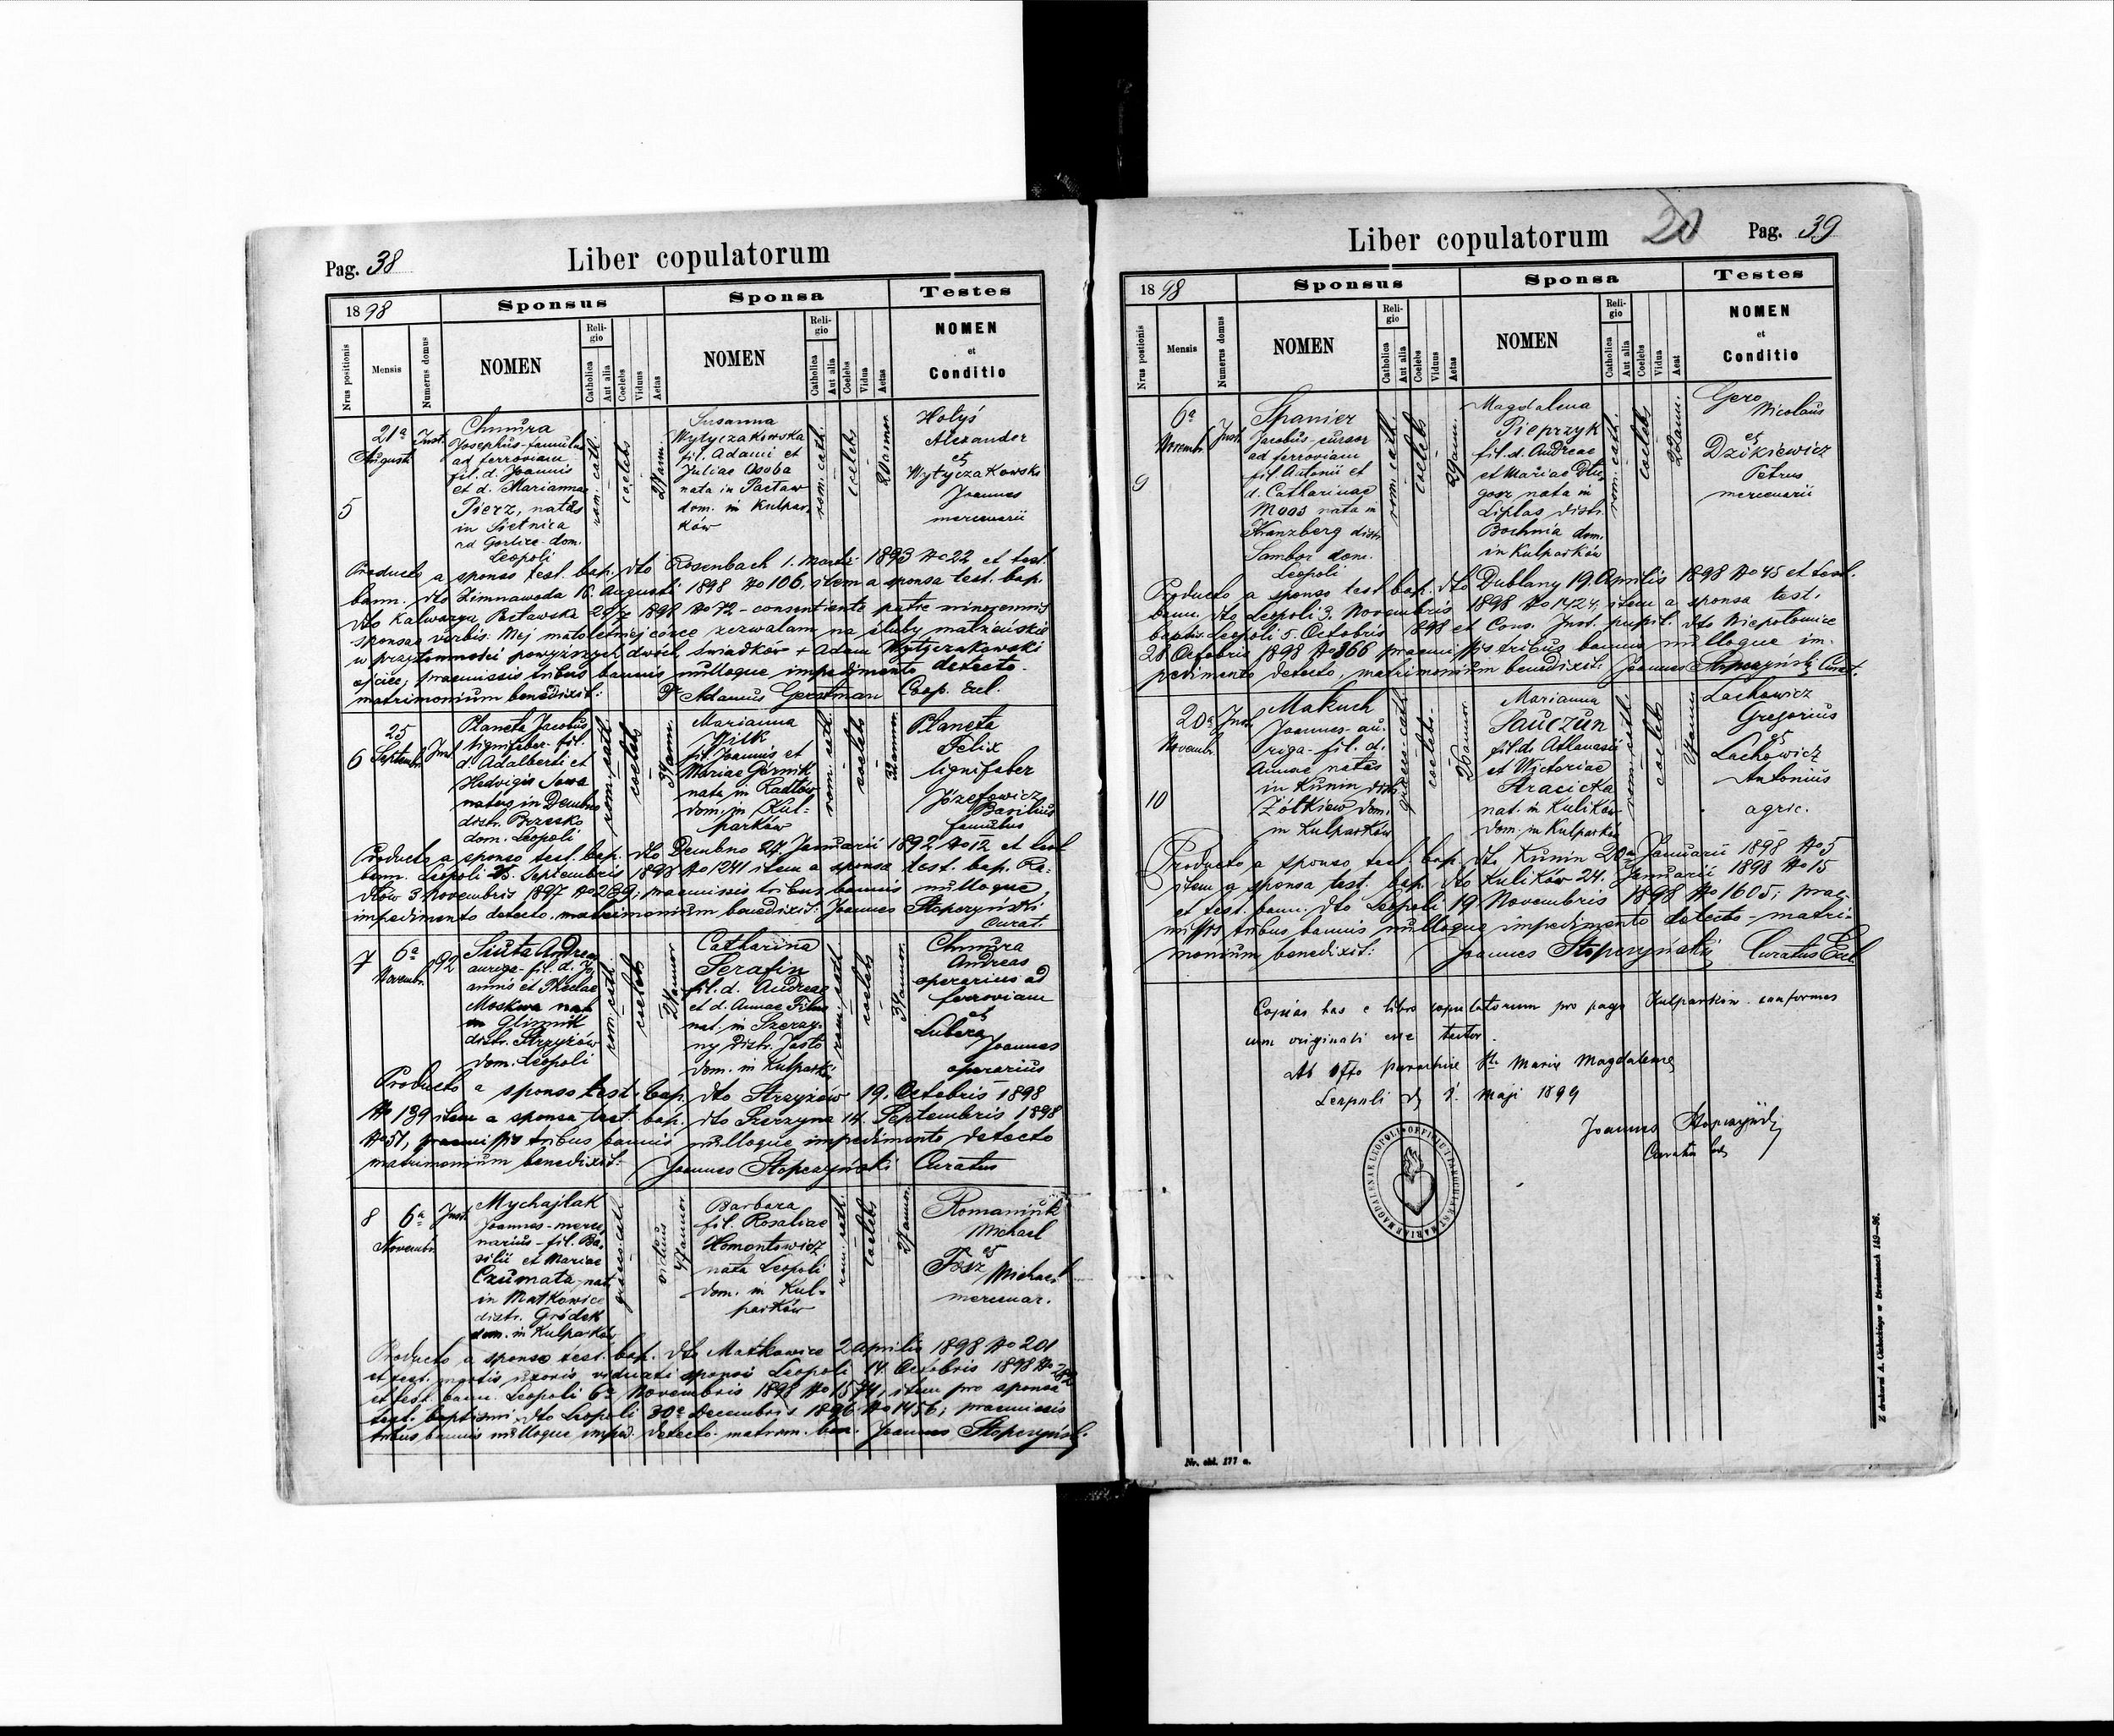 Pag. 38
Liber copulatorum
1898
Sponsus
Sponsa
Testes
Nrus positionis
Mensis
Numerus domus
NOMEN
Religio
Catholica
Aut alia
Coelebs
Viduus
Aetas
NOMEN
Religio
Catholica
Aut alia
Coelebs
Vidua
Aetas
NOMEN
et
Conditio
5
21a
Augusti
Inst.
Chmura
Josephus-famulus
ad ferroviam
fil. d. Joannis
et d. Mariannae
Pierz, natus
in Sietnica
ad Gorlice dom.
Leopoli
rom. cath.
coelebs
Susanna
Wytyczakowska
fil. Adami et
Juliae Osoba
nata in Pacław
dom. in Kulpar-
ków
rom. cath.
coelebs
20 annor.
Hołyś
Alexander
et
Wytyczakowski
Joannes
mercenarii
Producto a sponso test. bap. dto Rosenbach 1. Martii 1893 No 22 et test.
bann. dto Zimnawoda 16. Augusti 1898 No 106, item a sponsa test. bap.
dto Kalwarya Pacławska 29/7 1898 No 72 - consentiente patre minorennis
sponsae verbis: Mej małoletniej córce zezwalam na śluby małżeńskie
w przytomności powyższych dwóch świadków + Adam Wytyczakowski
ojciec; praemissis tribus bannis nulloque impedimento detecto
matrimonium benedixit: Adamus Gerstman Coop. Exl.
6
25
Septembr.
Inst.
Planeta Jacobus
lignifaber fil.
d. Adalberti et
Hedvigis Sowa
natus in Dembno
distr. Brzesko
dom. Leopoli
rom. cath.
coelebs
Marianna
Wilk
fil. Joannis et
Mariae Górnik
nata in Radłów
dom. in Kul-
parków
rom. cath.
coelebs
32 annor.
Planeta
Felix
lignifaber
Józefowicz
Basilius
famulus
Producto a sponso test. bap. dto Dembno 27. Januarii 1892 No 12 et test.
bann. Leopoli 25. Septembris 1898 No 1241 item a sponsa test. bap. Ra-
dłów 3 Novembris 1897 No 289; praemissis tribus bannis nulloque
impedimento detecto matrimonium benedixit: Joannes Stopczyński
Curat.
7
6a
Novembr.
92
Siuta Andreas
auriga - fil. d. Jo
annis et Theclae
Moskwa nat
in Glinnik
distr. Strzyżów
dom. Leopoli
rom. cath.
coelebs
Catharina
Serafin
fil. d. Andreae
et d. Annae
nat. in Szerzy-
ny distr. Jasło
dom. in Kulpark.
rom. cath.
coelebs
Chmura
Andreas
operarius ad
ferroviam
et
Lubera
Joannes
operarius
Producto a sponso test. bap. dto Strzyżów 19. Octobris 1898
No 139 item a sponsa test. bap. dto Szerzyna 14. Septembris 1898
No 51, praemissis tribus bannis nulloque impedimento detecto
matrimonium benedixit: Joannes Stopczyński Curatus
8
6a
Novembr.
Inst.
Mychajlak
Joannes - merce
narius - fil. Ba-
silii et Mariae
Czumata nat
in Małkowice
distr. Gródek
dom. in Kulparków
graeco cath.
viduus
Barbara
fil. Rosaliae
Homontowicz
nata Leopoli
dom. in Kul-
parków
rom. cath.
coelebs
Romaniuk
Michael
et
Michael
mercenar.
Producto a sponso test. bap. dto Małkowice 2 Aprilis 1898 No 201
et test. mortis uxoris viduati sponsi Leopoli 14. Octobris 1898 No 282
et test. bann. Leopoli 6a Novembris 1898 No 1574, item pro sponsa
test. baptismi dto Leopoli 30a Decembris 1896 No 1456; praemissis
tribus bannis nulloque imped. detecto matrim. ben. Joannes Stopczyński.
20
Pag. 39
Liber copulatorum
1898
Sponsus
Sponsa
Testes
Nrus postionis
Mensis
Numerus domus
NOMEN
Religio
Catholica
Aut alia
Coelebs
Viduus
Aetas
NOMEN
Religio
Catholica
Aut alia
Coelebs
Vidua
Aeat
NOMEN
et
Conditio
9
6a
Novembr.
Inst.
Spanier
Jacobus - cursor
ad ferroviam
fil. Antonii et
d. Catharinae
Moos nata in
Kranzberg distr.
Sambor dom.
Leopoli
rom. cath.
coelebs
29 ann.
Magdalena
Pieprzyk
fil. d. Andreae
et Mariae Dłu-
gosz nata in
Liplas distr.
Bochnia dom.
in Kulparków
rom. cath.
coelebs
22 ann.
Gero
Nicolaus
et
Dzikiewicz
Petrus
mercenarii
Producto a sponso test bap. dto Dublany 19. Aprilis 1898 No 45 et test.
bann. dto Leopoli 3. Novembris 1898 No 1424, item a sponsa test.
baptis. Leopoli 5. Octobris 1898 et Cons. Inst. pupil. dto Niepołomice
28 Octobris 1898 No 866 praemissis tribus bannis nulloque im-
pedimento detecto, matrimonium benedixit: Joannes Stopczyński Curat.
10
20a
Novembr.
Inst.
Makuch
Joannes - au-
riga - fil. d.
Annae natus
in Kunin distr.
Żółkiew dom.
in Kulparków
graeco cath.
coelebs
26 annor.
Marianna
Sauczun
fil. d. Athanasii
et Wictoriae
Hracicka
nat. in Kulików
dom. in Kulparków
rom. cath.
coelebs
Lachowicz
Gregorius
et
Lachowicz
Antonius
agric.
Producto a sponso test. bap. dto Kunin 20a Januarii 1898 No 5
item a sponsa test. bap. dto Kulików 24. Januarii 1898 No 15
et test. bann. dto Leopoli 19 Novembris 1898 No 1605; prae-
missis tribus bannis nulloque impedimento detecto - matri-
monium benedixit: Joannes Stopczyński Curatus Exl.
Copias has e libro copulatorum pro pago Kulparków conformes
cum originali esse testor.
Ab offo parochiae St. Mariae Magdalenae
Leopoli d 1. Maji 1899
Joannes Stopczyński
Curatus
OFFICIUM PAROCHIAE ST. MARIAE MAGDALENAE LEOPOLI
Nr. okl. 177 a.
Z drukarni A.